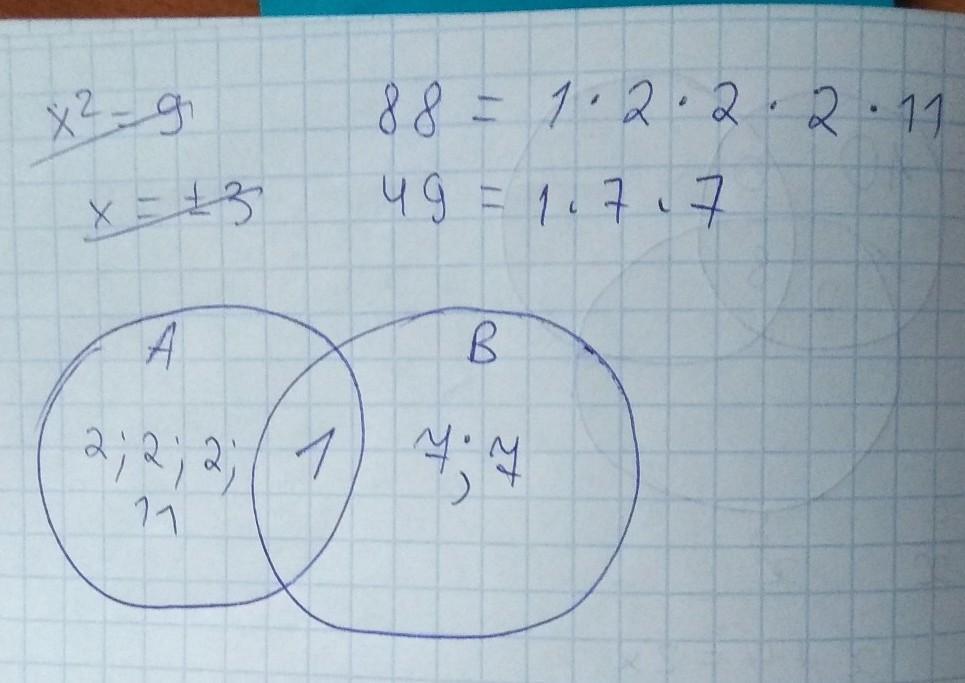 x² = 9
x = ±3
88 = 1 · 2 · 2 · 2 · 11
49 = 1 · 7 · 7
A
B
2; 2; 2;
11
1
7; 7